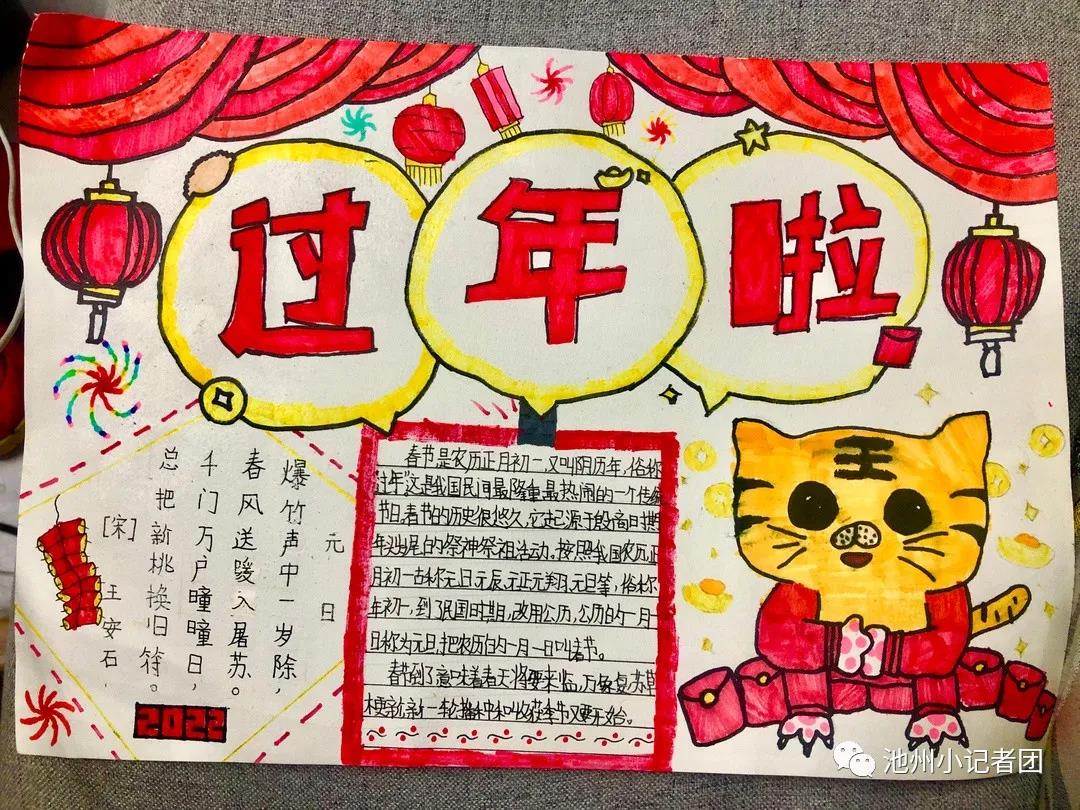 过年啦
元日
爆竹声中一岁除,
春风送暖入屠苏。
千门万户曈曈日,
总把新桃换旧符。
[宋]王安石
2022
春节是农历正月初一,又叫阴历年,俗称
过年,这是我国民间最隆重最热闹的一个传统
节日。春节的历史很悠久,它起源于殷商
年头岁尾的祭神祭祖活动。按照我国农历,正
月初一古称元日,元辰,元正,元朔,元旦等,俗称
年初一,到了民国时期,改用公历,公历的一月一
日称为元旦,把农历的一月一日叫春节。
春节到了意味着春天将要来临,万象复苏草
木更新,新一轮播种和收获季节又要开始。
王
池州小记者团